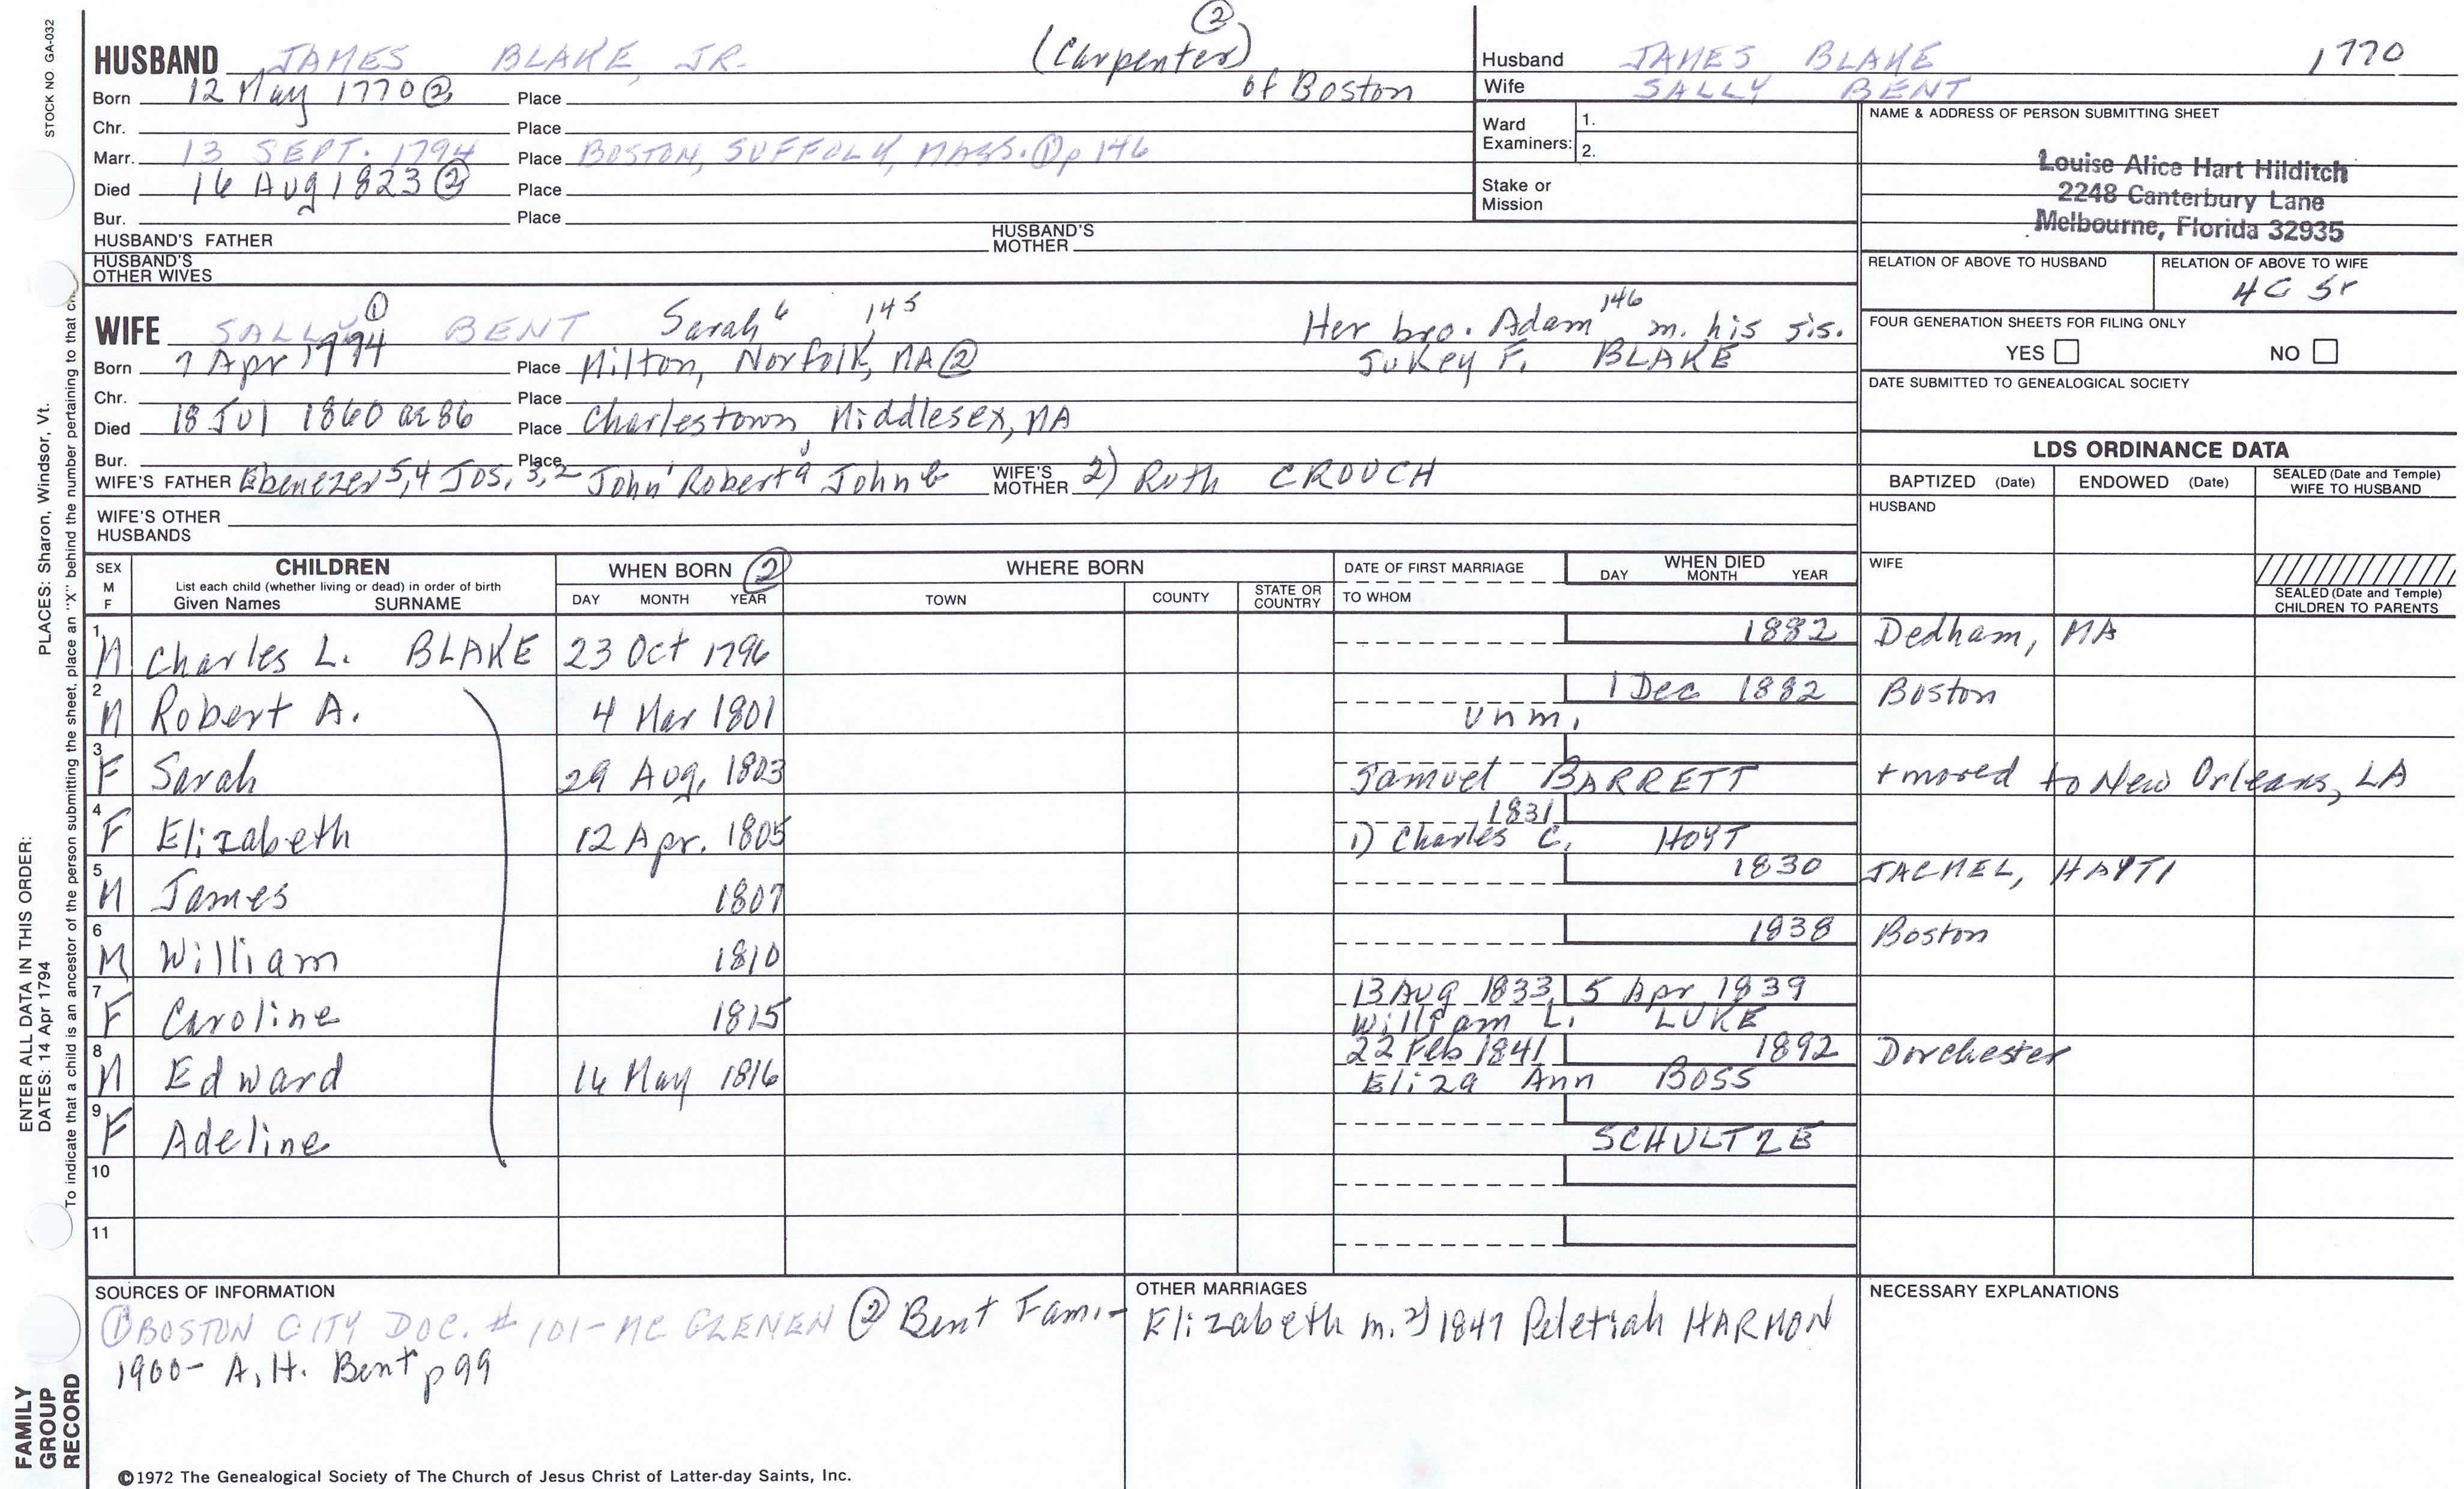 STOCK NO. GA-032
②
HUSBAND JAMES BLAKE, JR. (Carpenter)
Born 12 May 1770② Place of Boston
Chr. Place
Marr. 13 SEPT. 1794 Place BOSTON, SUFFOLK, MASS. ①p 146
Died 16 Aug 1823② Place
Bur. Place
HUSBAND'S FATHER HUSBAND'S MOTHER
HUSBAND'S OTHER WIVES
Husband JAMES BLAKE 1770
Wife SALLY BENT
Ward Examiners: 1.
2.
Stake or Mission
NAME & ADDRESS OF PERSON SUBMITTING SHEET
Louise Alice Hart Hilditch
2248 Canterbury Lane
Melbourne, Florida 32935
RELATION OF ABOVE TO HUSBAND RELATION OF ABOVE TO WIFE
4C 5r
FOUR GENERATION SHEETS FOR FILING ONLY
YES NO
DATE SUBMITTED TO GENEALOGICAL SOCIETY
① 
WIFE SALLY BENT Sarah⁶ 145 Her bro. Adam 146 m. his sis.
Born 7 Apr 1774 Place Milton, Norfolk, MA② Sukey F. BLAKE
Chr. Place
Died 18 Jul 1860 ae 86 Place Charlestown, Middlesex, MA
Bur. Place
WIFE'S FATHER Ebenezer 5,4 Jos, 3,2 John' Robert a John b WIFE'S MOTHER 2) Ruth CROUCH
WIFE'S OTHER HUSBANDS
LDS ORDINANCE DATA
BAPTIZED (Date) ENDOWED (Date) SEALED (Date and Temple) WIFE TO HUSBAND
HUSBAND
WIFE
SEALED (Date and Temple) CHILDREN TO PARENTS
SEX M F
CHILDREN
List each child (whether living or dead) in order of birth
Given Names SURNAME
WHEN BORN ②
DAY MONTH YEAR
WHERE BORN
TOWN COUNTY STATE OR COUNTRY
DATE OF FIRST MARRIAGE
TO WHOM
WHEN DIED
DAY MONTH YEAR
1 M Charles L. BLAKE 23 Oct 1796 1882 Dedham, MA
2 M Robert A. 4 Mar 1801 unm. 1 Dec 1882 Boston
3 F Sarah 29 Aug, 1803 Samuel BARRETT + moved to New Orleans, LA
4 F Elizabeth 12 Apr. 1805 1831 1) Charles C. HOYT
5 M James 1807 1830 JACMEL, HAYTI
6 M William 1810 1838 Boston
7 F Caroline 1815 13 Aug 1833 William L. LUKE 5 Apr 1839
8 M Edward 14 May 1816 22 Feb 1841 Eliza Ann BOSS 1892 Dorchester
9 F Adeline SCHULTZE
10
11
SOURCES OF INFORMATION
①BOSTON CITY DOC. # 101-MC GLENEN ② Bent Fam.-
1900- A.H. Bent p 99
OTHER MARRIAGES
Elizabeth m. 2) 1847 Peletiah HARMON
NECESSARY EXPLANATIONS
©1972 The Genealogical Society of The Church of Jesus Christ of Latter-day Saints, Inc.
PLACES: Sharon, Windsor, Vt.
ENTER ALL DATA IN THIS ORDER:
DATES: 14 Apr 1794
To indicate that a child is an ancestor of the person submitting the sheet, place an "X" behind the number pertaining to that
FAMILY GROUP RECORD